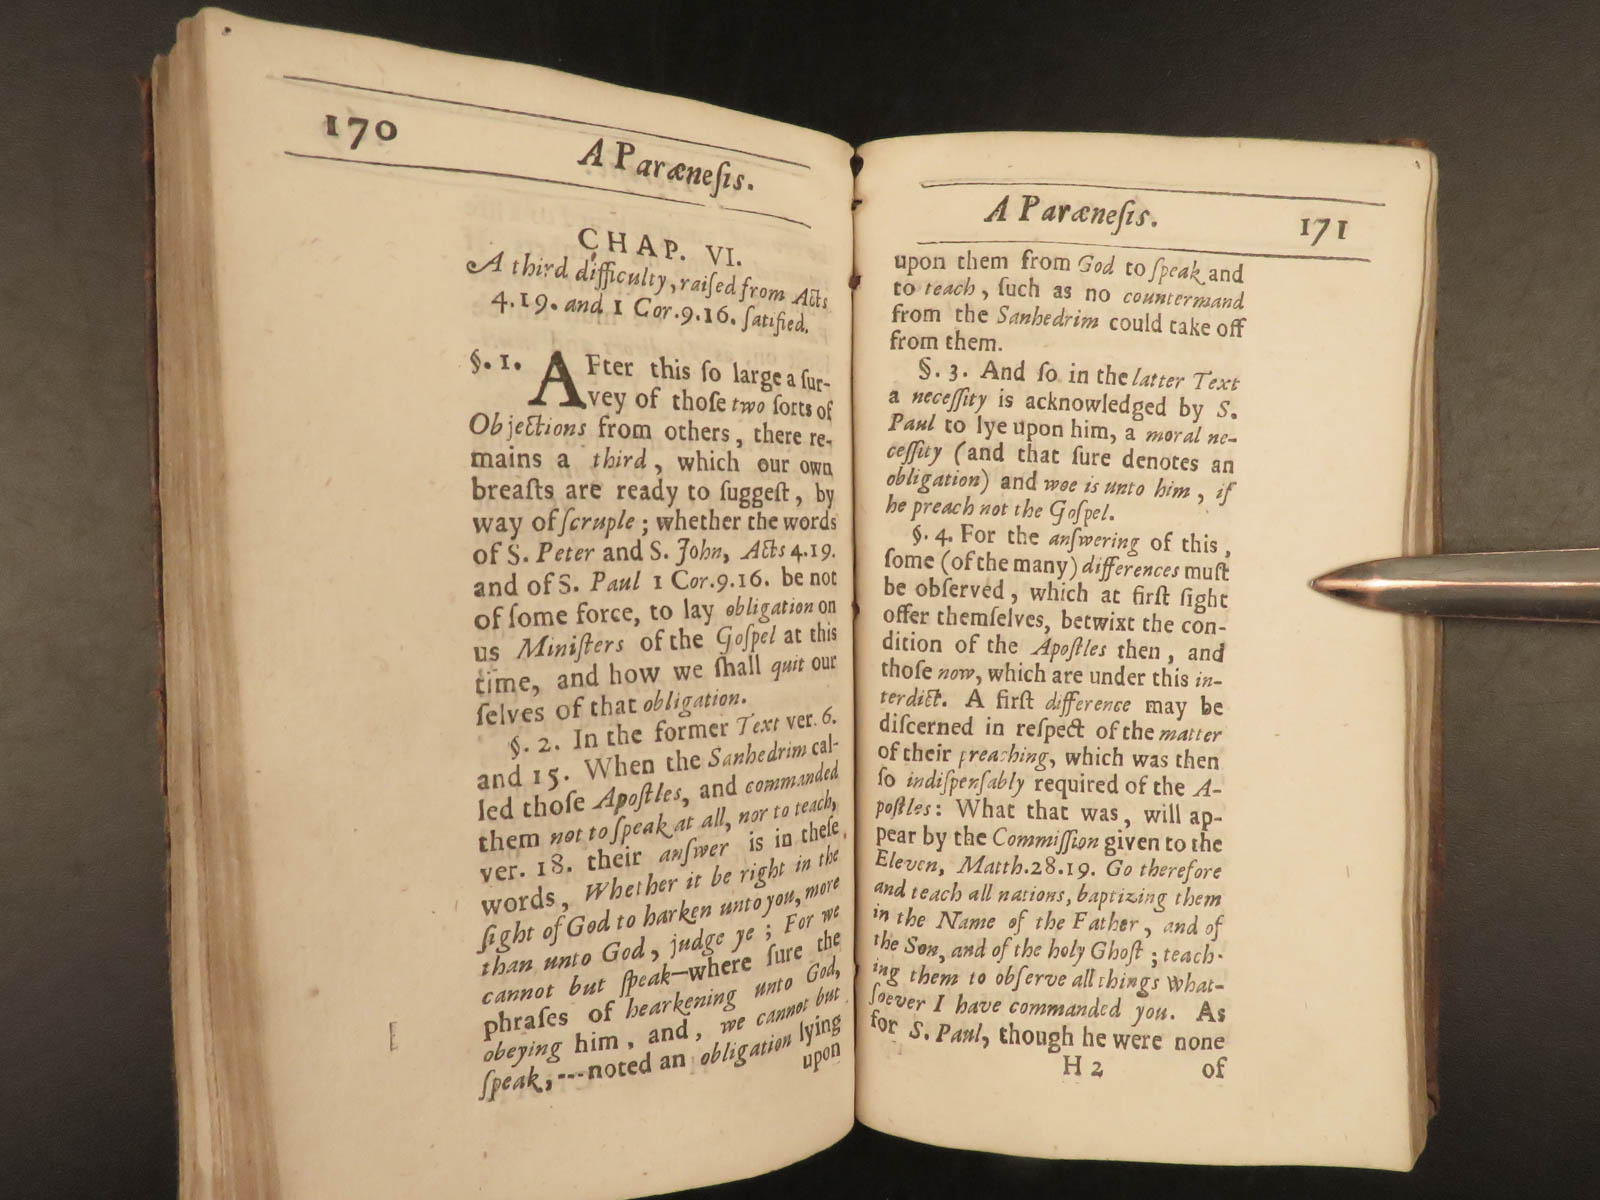 170
A Paræneſis.
CHAP. VI.
A third difficulty, raiſed from Acts
4.19. and 1 Cor.9.16. ſatiſied.
§. 1. AFter this ſo large a ſur-
vey of thoſe two ſorts of
Objections from others, there re-
mains a third, which our own
breaſts are ready to ſuggeſt, by
way of ſcruple; whether the words
of S. Peter and S. John, Acts 4.19.
and of S. Paul 1 Cor.9.16. be not
of ſome force, to lay obligation on
us Miniſters of the Goſpel at this
time, and how we ſhall quit our
ſelves of that obligation.
§. 2. In the former Text ver. 6.
and 15. When the Sanhedrim cal-
led thoſe Apoſtles, and commanded
them not to ſpeak at all, nor to teach,
ver. 18. their anſwer is in theſe
words, Whether it be right in the
ſight of God to harken unto you, more
than unto God, judge ye; For we
cannot but ſpeak—where ſure the
phraſes of hearkening unto God,
obeying him, and, we cannot but
ſpeak,---noted an obligation lying
upon
A Paræneſis.
171
upon them from God to ſpeak and
to teach, ſuch as no countermand
from the Sanhedrim could take off
from them.
§. 3. And ſo in the latter Text
a neceſſity is acknowledged by S.
Paul to lye upon him, a moral ne-
ceſſity (and that ſure denotes an
obligation) and woe is unto him, if
he preach not the Goſpel.
§. 4. For the anſwering of this,
ſome (of the many) differences muſt
be obſerved, which at firſt ſight
offer themſelves, betwixt the con-
dition of the Apoſtles then, and
thoſe now, which are under this in-
terdict. A firſt difference may be
diſcerned in reſpect of the matter
of their preaching, which was then
ſo indiſpenſably required of the A-
poſtles: What that was, will ap-
pear by the Commiſſion given to the
Eleven, Matth.28.19. Go therefore
and teach all nations, baptizing them
in the Name of the Father, and of
the Son, and of the holy Ghoſt; teach-
ing them to obſerve all things what-
ſoever I have commanded you. As
for S. Paul, though he were none
H 2
of